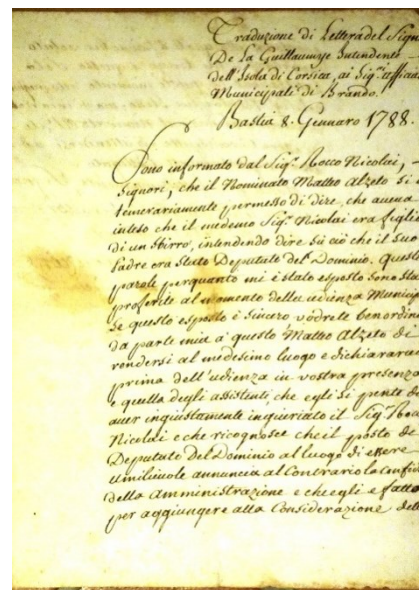 Traduzione di Lettera del Sign
De La Guillaumye Intendente
dell'Isola di Corsica, ai Sig.ri ufficia
Municipali di Brando.
Bastia 8. Gennaro 1788.
Sono informato dal Sig.r Rocco Nicolai, -
Signori, che il Nominato Matteo Alzeto si è
temerariamente permesso di dire, che aueua
inteso che il medemo Sig.r Nicolai era figli
di un Sbirro, intendendo dire sù ciò che il suo
Padre era stato Deputato del Dominio. Queste
parole perquanto mi è stato esposto sono sta
proferite al momento della udienza Municip
se questo esposto è sincero vodrete ben ordin
da parte mia a questo Matteo Alzeto de
rendersi al medesimo luogo e dichiarara
prima dell'udienza in vostra presenza
e quella degli assistenti, che egli si pente d'
auer ingiustamente ingiuriato il Sig.r Roc
Nicolai e che ricognosce che il posto de
Deputato del Dominio al luogo di essere
umiliuole annuncia al Contrario la Confid
della Amministrazione e che egli è fatto
per aggiungere alla Considerazione dell